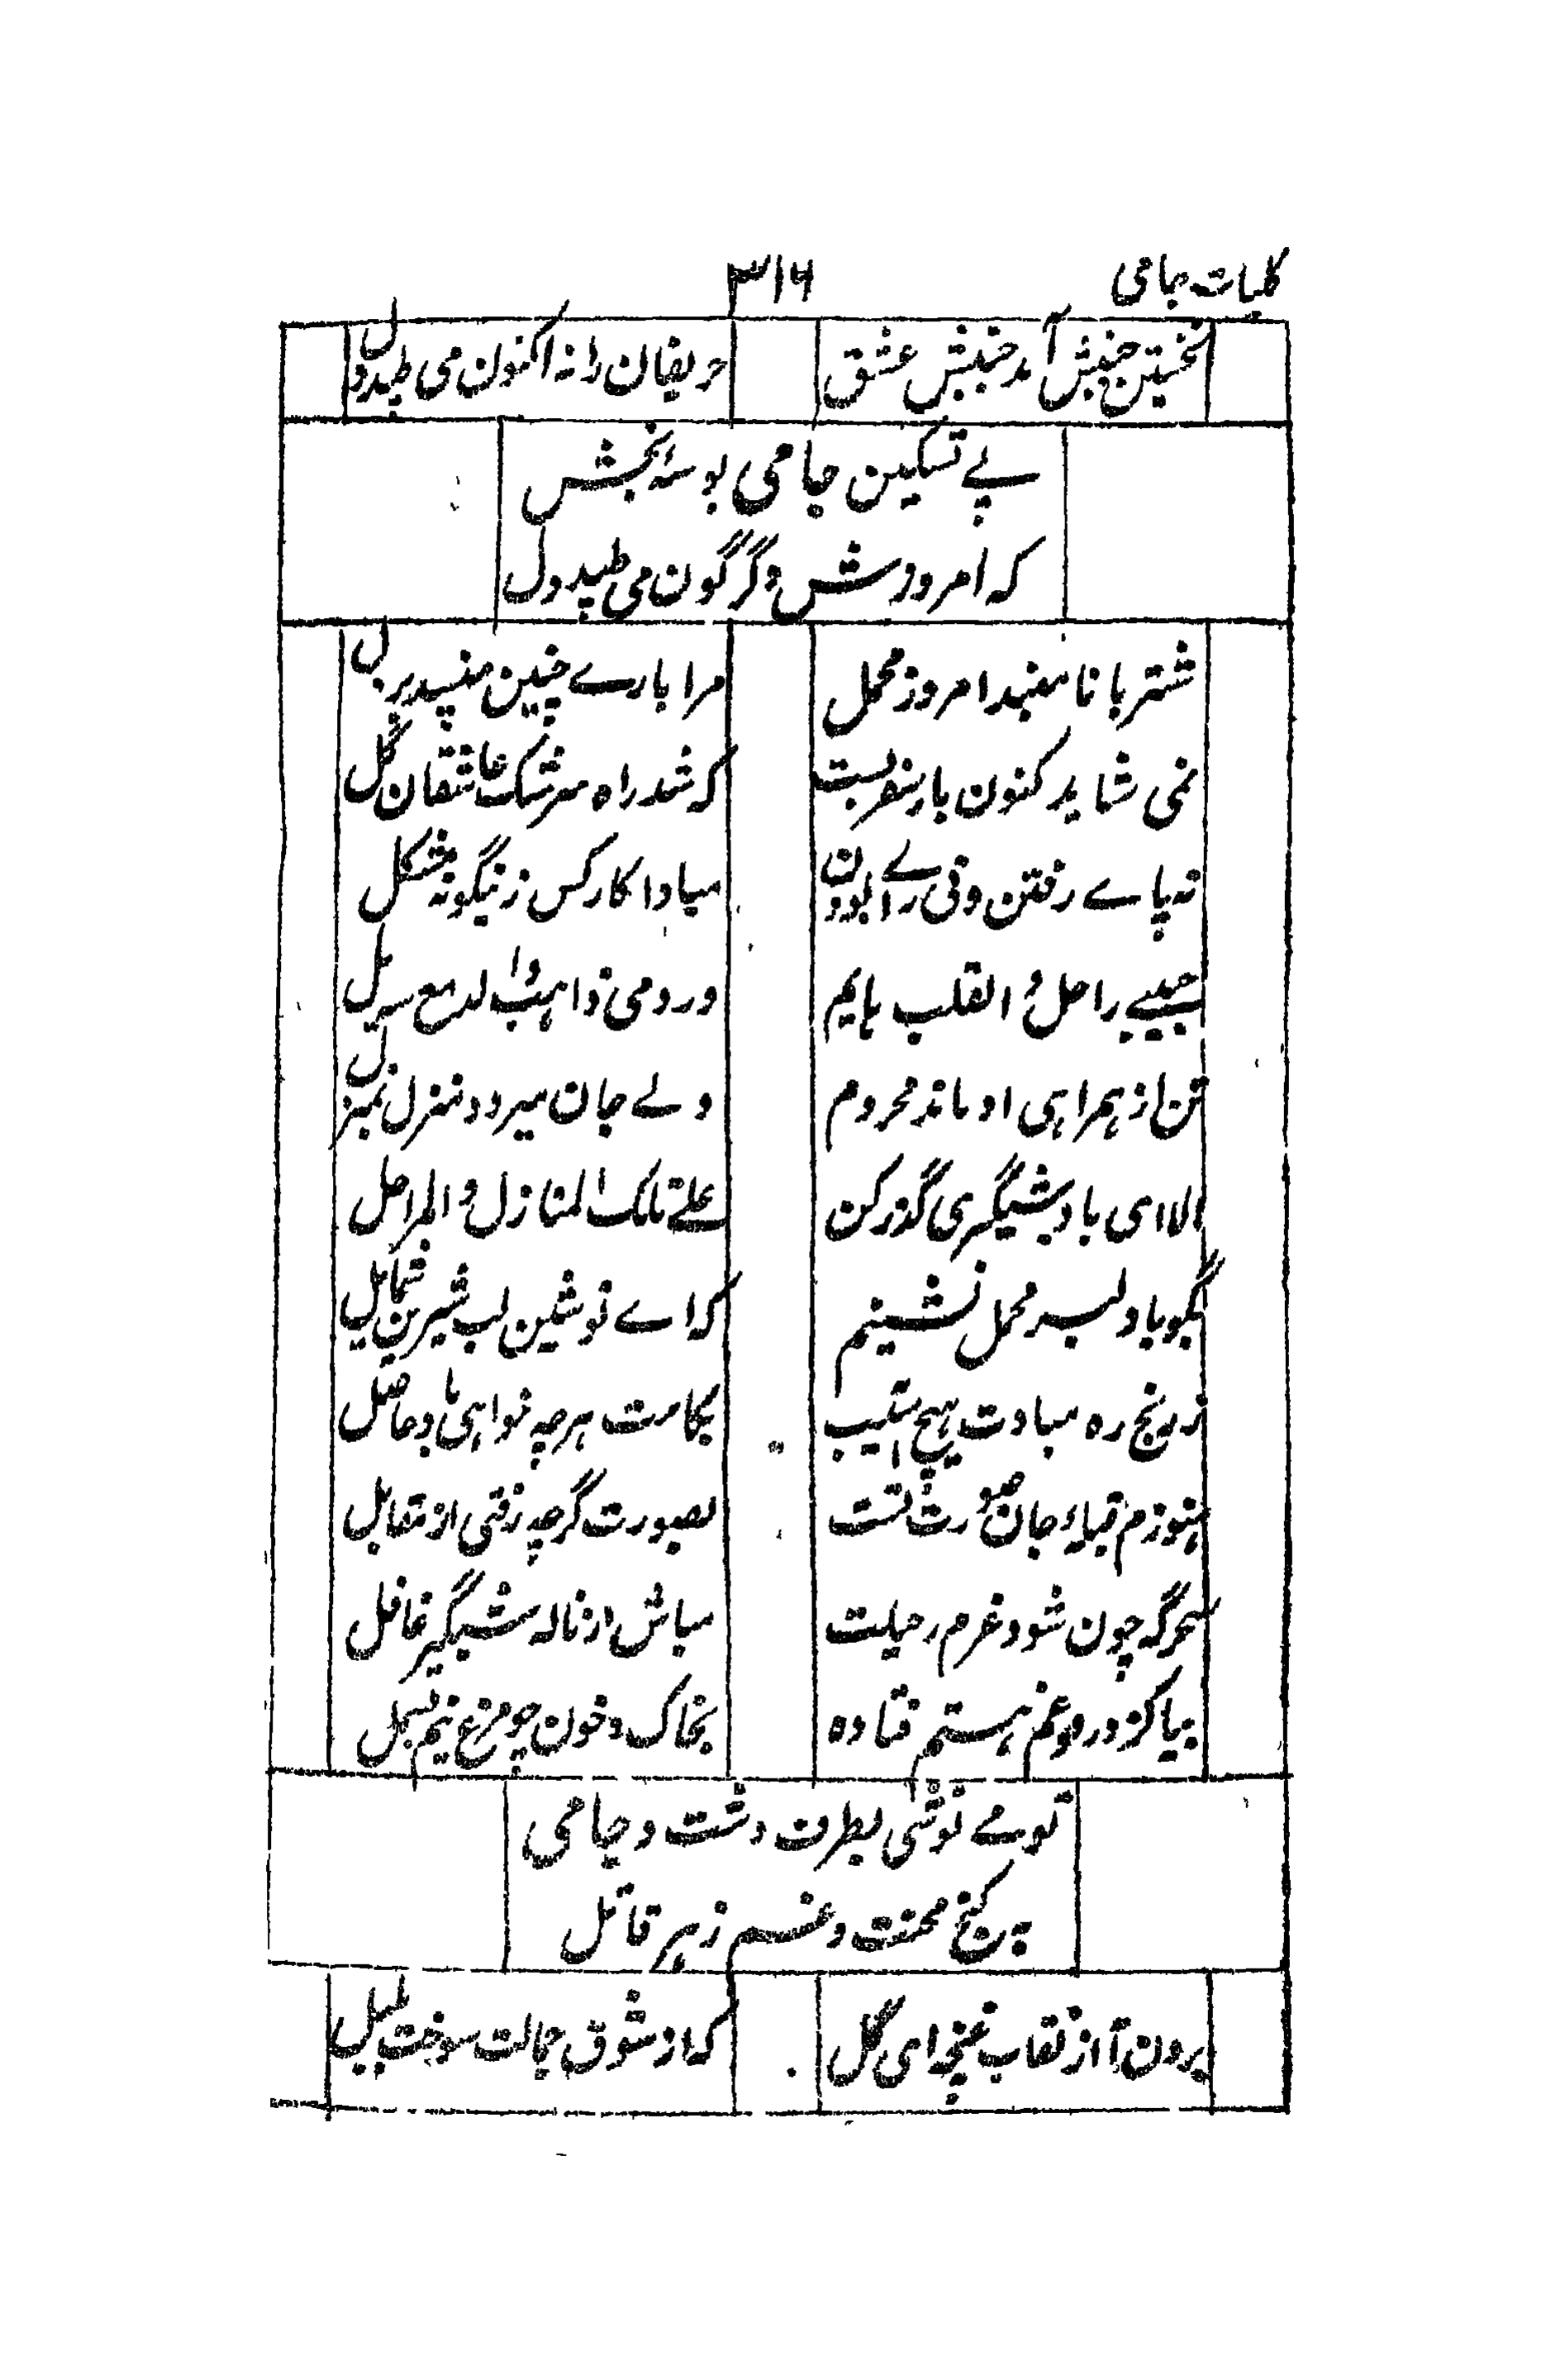 کلیات جامی
۳۱۶
نخستین جنبش آمد جنبش عشق
حریفان را نه اکنون می طپد دل
پے تسکین جامی بوسۂ بخش
که امروزش دگرگون می طپد دل
شتربانا مبند امروز محمل
مرا بارے چنین مپسند بر دل
نمی شاید کنون بار سفر بست
که شد راه سرشک عاشقان گل
نه پاے رفتن و نی راے بودن
مبادا کار کس زینگونه مشکل
حبیبے راحل و القلب هایم
و روحی ذاهب والدمع سایل
تن از همراهی او ماند محروم
ولے جان میرود منزل بمنزل
الا ای باد شبگیری گذر کن
علے تلک المنازل و المراحل
بگو با دلبر محمل نشینم
که اے نوشین لب شیرین شمایل
ز رنج ره مبادت هیچ آسیب
بکامت هرچه خواهی باد حاصل
هنوزم قبلهٔ جان صورت تست
بصورت گرچه رفتی از مقابل
سحرگه چون شود عزم رحیلت
مباش از ناله شبگیر غافل
بیا کز درد و غم هستم فتاده
بخاک و خون چو مرغ نیم بسمل
تو مے نوشی بطرف دشت و جامی
کنج محنت و غم زهر قاتل
برون آ از نقاب غنچه ای گل
که از شوق جمالت سوخت بلبل